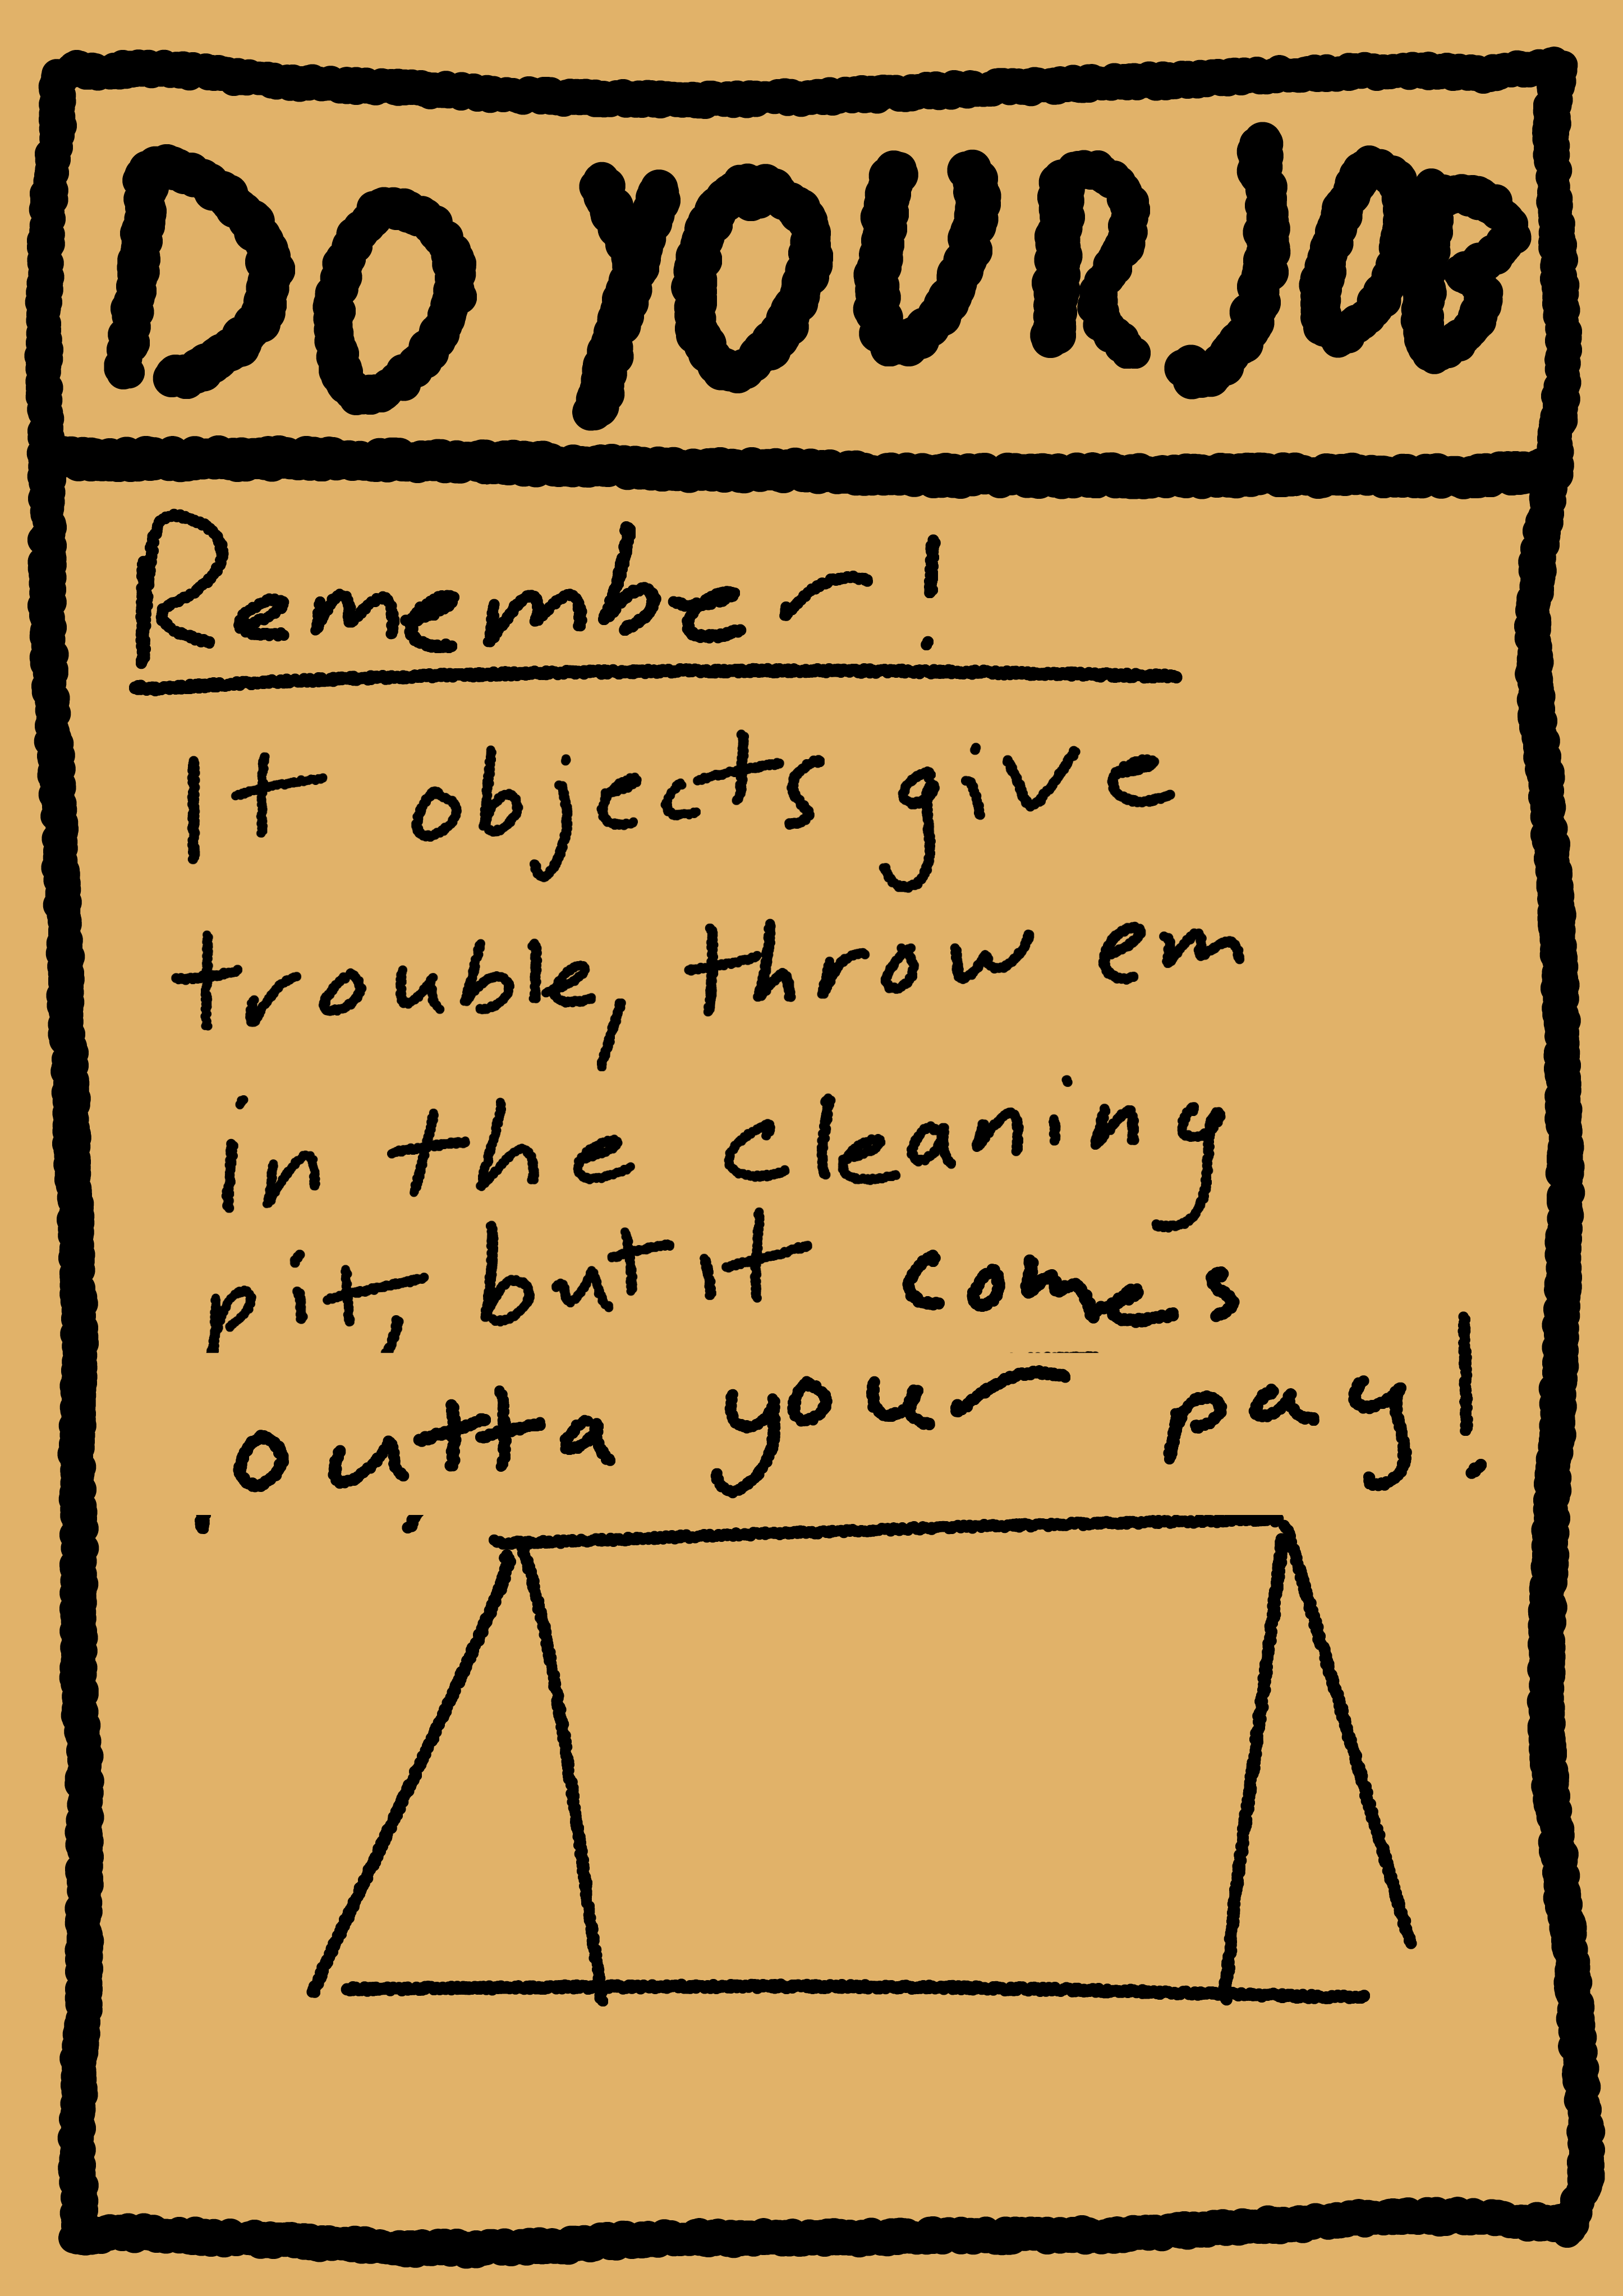 DO YOUR JOB
Remember!
It objects give
trouble, throw em
in the cleaning
pit, but it comes
outta your pay!